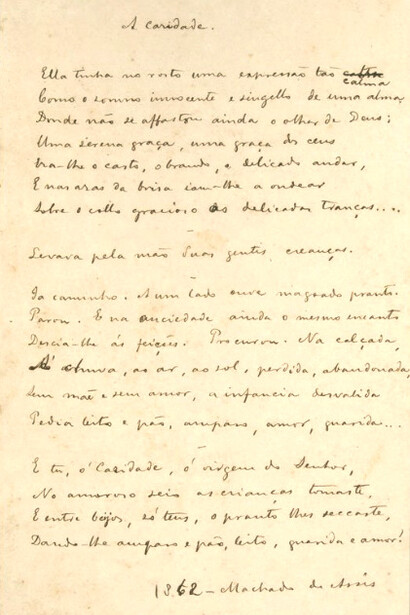 A Caridade.
Ella tinha no rosto uma expressão tão calma
Como o somno innocente e singello de uma alma
Donde não se affastou ainda o olhar de Deus;
Uma serena graça, uma graça dos ceus
Era-lhe o casto, o brando, o delicado andar,
E nas azas da brisa iam-lhe a ondear
Sobre o collo gracioso as delicadas tranças....
Levava pela mão duas gentis creanças.
Ia caminho. A um lado ouve magoado pranto.
Parou. E na anciedade ainda o mesmo encanto
Descia-lhe ás feições. Procurou. Na calçada,
Á chuva, ao ar, ao sol, perdida, abandonada,
Sem mãe e sem amor, a infancia desvalida
Pedia leito e pão, amparo, amor, guarida...
E tu, ó Caridade, ó virgem do Senhor,
No amoroso seio as crianças tomaste,
E entre beijos, só teus, o pranto lhes seccaste,
Dando-lhe amparo e pão, leito, guarida e amor!
1862 - Machado de Assis